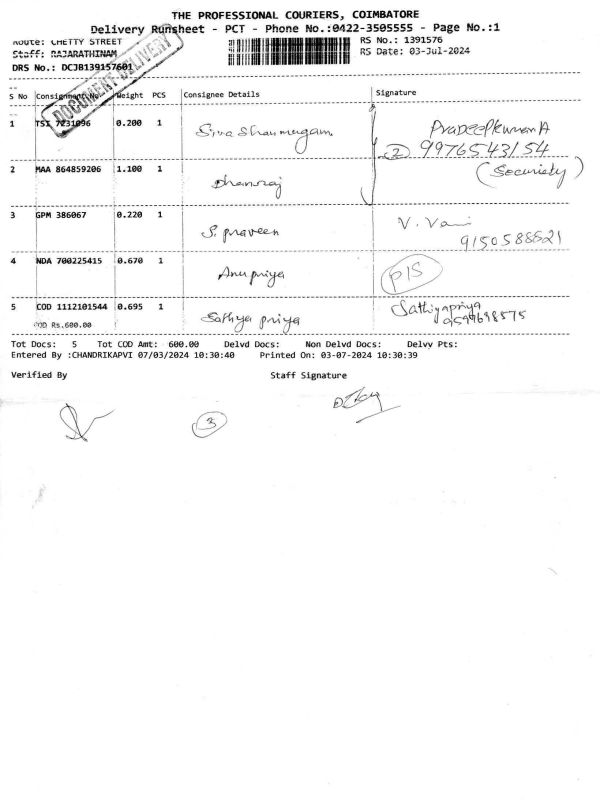 THE PROFESSIONAL COURIERS, COIMBATORE
Delivery Runsheet - PCT - Phone No.:0422-3505555 - Page No.:1
Route: CHETTY STREET
RS No.: 1391576
Staff: RAJARATHINAM
RS Date: 03-Jul-2024
DRS No.: DCJB139157601
DOCUMENT DELIVERY
S No Consignment No Weight PCS Consignee Details Signature
1 TSI 7231096 0.200 1 Siva Shanmugam Pradeepkumar A
② 9976543154
2 MAA 864859206 1.100 1 Dhanraj (Security)
3 GPM 386067 0.220 1 S. Praveen V. Vani
9150588521
4 NDA 700225415 0.670 1 Anupriya P/S
5 COD 1112101544 0.695 1 Sathya priya Sathiyapriya
COD Rs.600.00 9597698575
Tot Docs: 5 Tot COD Amt: 600.00 Delvd Docs: Non Delvd Docs: Delvy Pts:
Entered By :CHANDRIKAPVI 07/03/2024 10:30:40 Printed On: 03-07-2024 10:30:39
Verified By Staff Signature
③